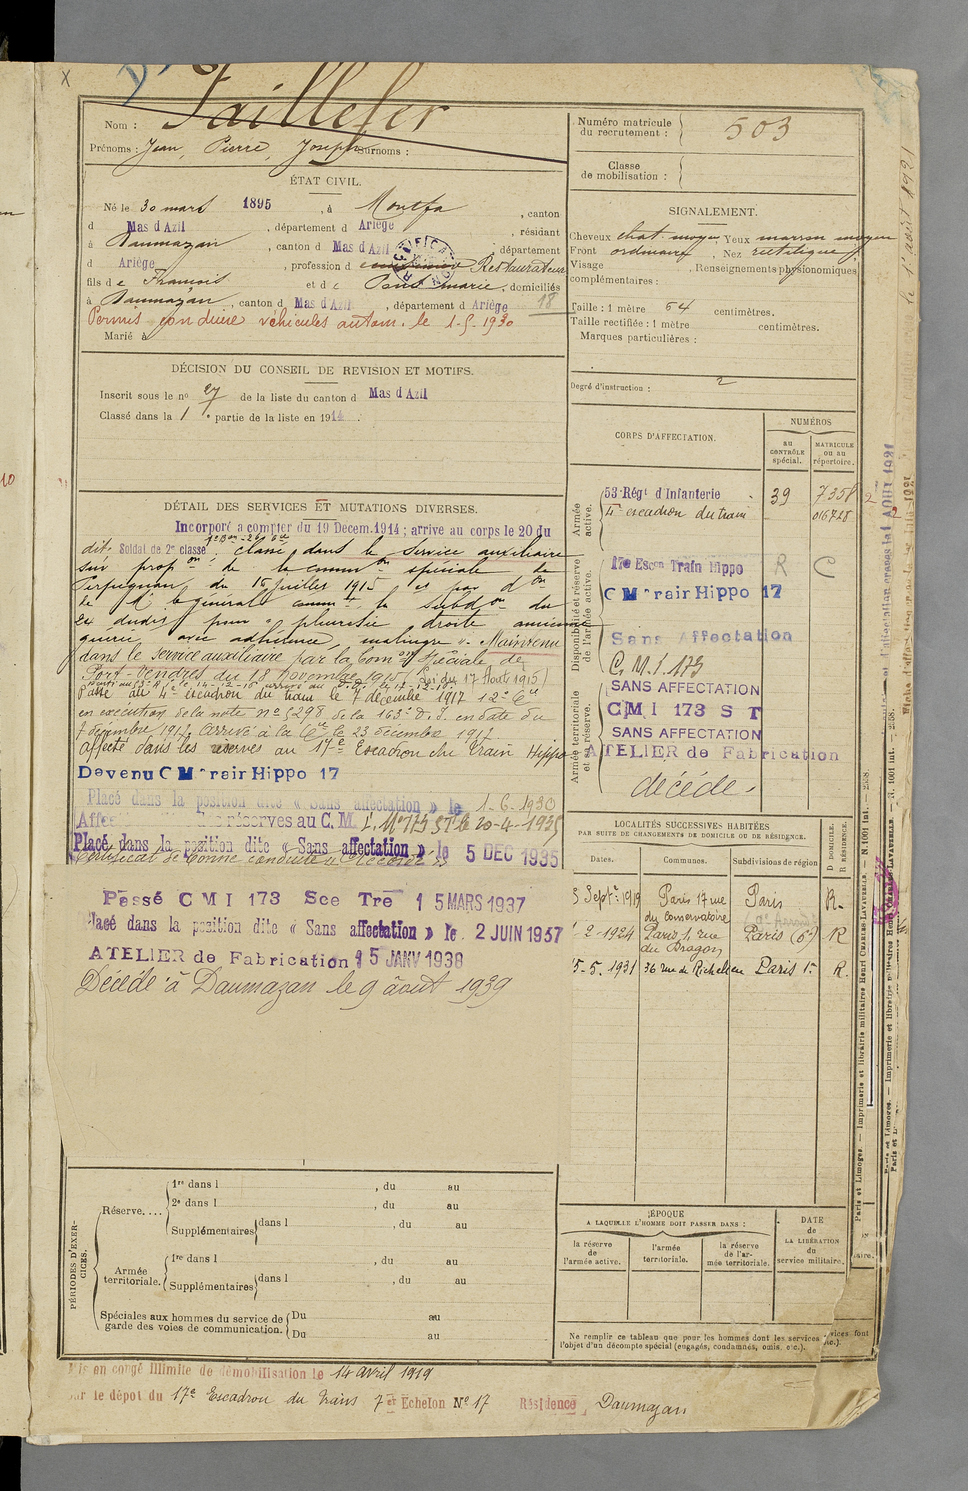 Nom : Taillefer
Prénoms : Jean, Pierre, Joseph Surnoms :
Numéro matricule
du recrutement : 503
Classe
de mobilisation :
ÉTAT CIVIL.
Né le 30 mars 1895, à Montfa, canton
d Mas d'Azil, département d Ariège, résidant
à Daumazan, canton d Mas d'Azil, département
d Ariège, profession d Restaurateur
fils de François et de Pons marie, domiciliés
à Daumazan, canton d Mas d'Azil, département d Ariège 18
Permis conduire véhicules autom. le 1-5-1930
Marié à
SIGNALEMENT.
Cheveux chat. moyen Yeux marron moyen
Front ordinaire, Nez rectiligne
Visage , Renseignements physionomiques
complémentaires :
Taille : 1 mètre 64 centimètres.
Taille rectifiée : 1 mètre centimètres.
Marques particulières :
Degré d'instruction : 2
DÉCISION DU CONSEIL DE REVISION ET MOTIFS.
Inscrit sous le no 27 de la liste du canton d Mas d'Azil
Classé dans la 1e partie de la liste en 1914.
CORPS D'AFFECTATION.
NUMÉROS
au
CONTRÔLE
spécial.
MATRICULE
ou au
répertoire.
Armée
active.
53e Régt d'Infanterie 39 7358
4e escadron du train 016728
Disponibilité et réserve
de l'armée active.
17e Escon Train Hippo R C
C M Train Hippo 17
Sans Affectation
C. M. I. 173
Armée territoriale
et sa réserve.
SANS AFFECTATION
CMI 173 S T
SANS AFFECTATION
ATELIER de Fabrication
décédé
DÉTAIL DES SERVICES ET MUTATIONS DIVERSES.
Incorporé à compter du 19 Décem. 1914 ; arrivé au corps le 20 du
dit. Soldat de 2e classe. Classé dans le service auxiliaire
sur propon de la common spéciale de
Perpignan du 16 juillet 1915 et par don
de Mr le général commt la subdon du
24 dudit pour "pleurésie droite ancienne
guérie avec adhérence, malingre". Maintenu
dans le service auxiliaire par la Comon Spéciale de
Port-Vendres du 18 novembre 1915 (Loi du 17 Août 1915)
Passé au 4e escadron du train le 7 décembre 1917 12e Cie
en exécution de la note no 5298 de la 163e D. I. en date du
7 décembre 1917. Arrivé à la Cie le 23 décembre 1917
Affecté dans les réserves au 17e Escadron du Train Hippo
Devenu C M Train Hippo 17
Placé dans la position dite « Sans affectation » le 1-6-1930
Affecté réserves au C. M. I. No 173 St le 20-4-1935
Placé dans la position dite « Sans affectation » le 5 DEC 1935
Certificat de bonne conduite « Accordé »
Passé C M I 173 Sce Tre 15 MARS 1937
Placé dans la position dite « Sans affectation » le 2 JUIN 1937
ATELIER de Fabrication 15 JANV 1938
Décédé à Daumazan le 9 août 1939
LOCALITÉS SUCCESSIVES HABITÉES
PAR SUITE DE CHANGEMENTS DE DOMICILE OU DE RÉSIDENCE.
Dates. Communes. Subdivisions de région
D. DOMICILE.
R. RÉSIDENCE.
Septre 1919 Paris 17 rue Paris R.
du Conservatoire
2 1924 Paris 1, rue Paris (6e) R
du Dragon
5-5-1931 36 rue de Richelieu Paris 1er R.
PÉRIODES D'EXERCICES.
Réserve....
1re dans l , du au
2e dans l , du au
Supplémentaires dans l , du au
Armée
territoriale.
1re dans l , du au
Supplémentaires dans l , du au
Spéciales aux hommes du service de
garde des voies de communication.
Du au
Du au
ÉPOQUE
A LAQUELLE L'HOMME DOIT PASSER DANS :
la réserve
de
l'armée active.
l'armée
territoriale.
la réserve
de l'ar-
mée territoriale.
DATE
de
LA LIBÉRATION
du
service militaire.
Ne remplir ce tableau que pour les hommes dont les services font
l'objet d'un décompte spécial (engagés, condamnés, omis, etc.).
Mis en congé illimité de démobilisation le 14 avril 1919
par le dépôt du 17e Escadron du Train 7e Echelon No 17 Résidence Daumazan